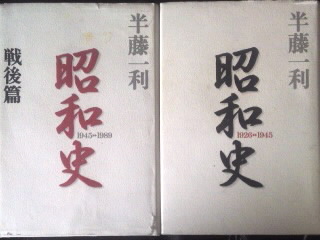 半藤一利
昭和史
1945-1989
戦後篇
半藤一利
昭和史
1926-1945